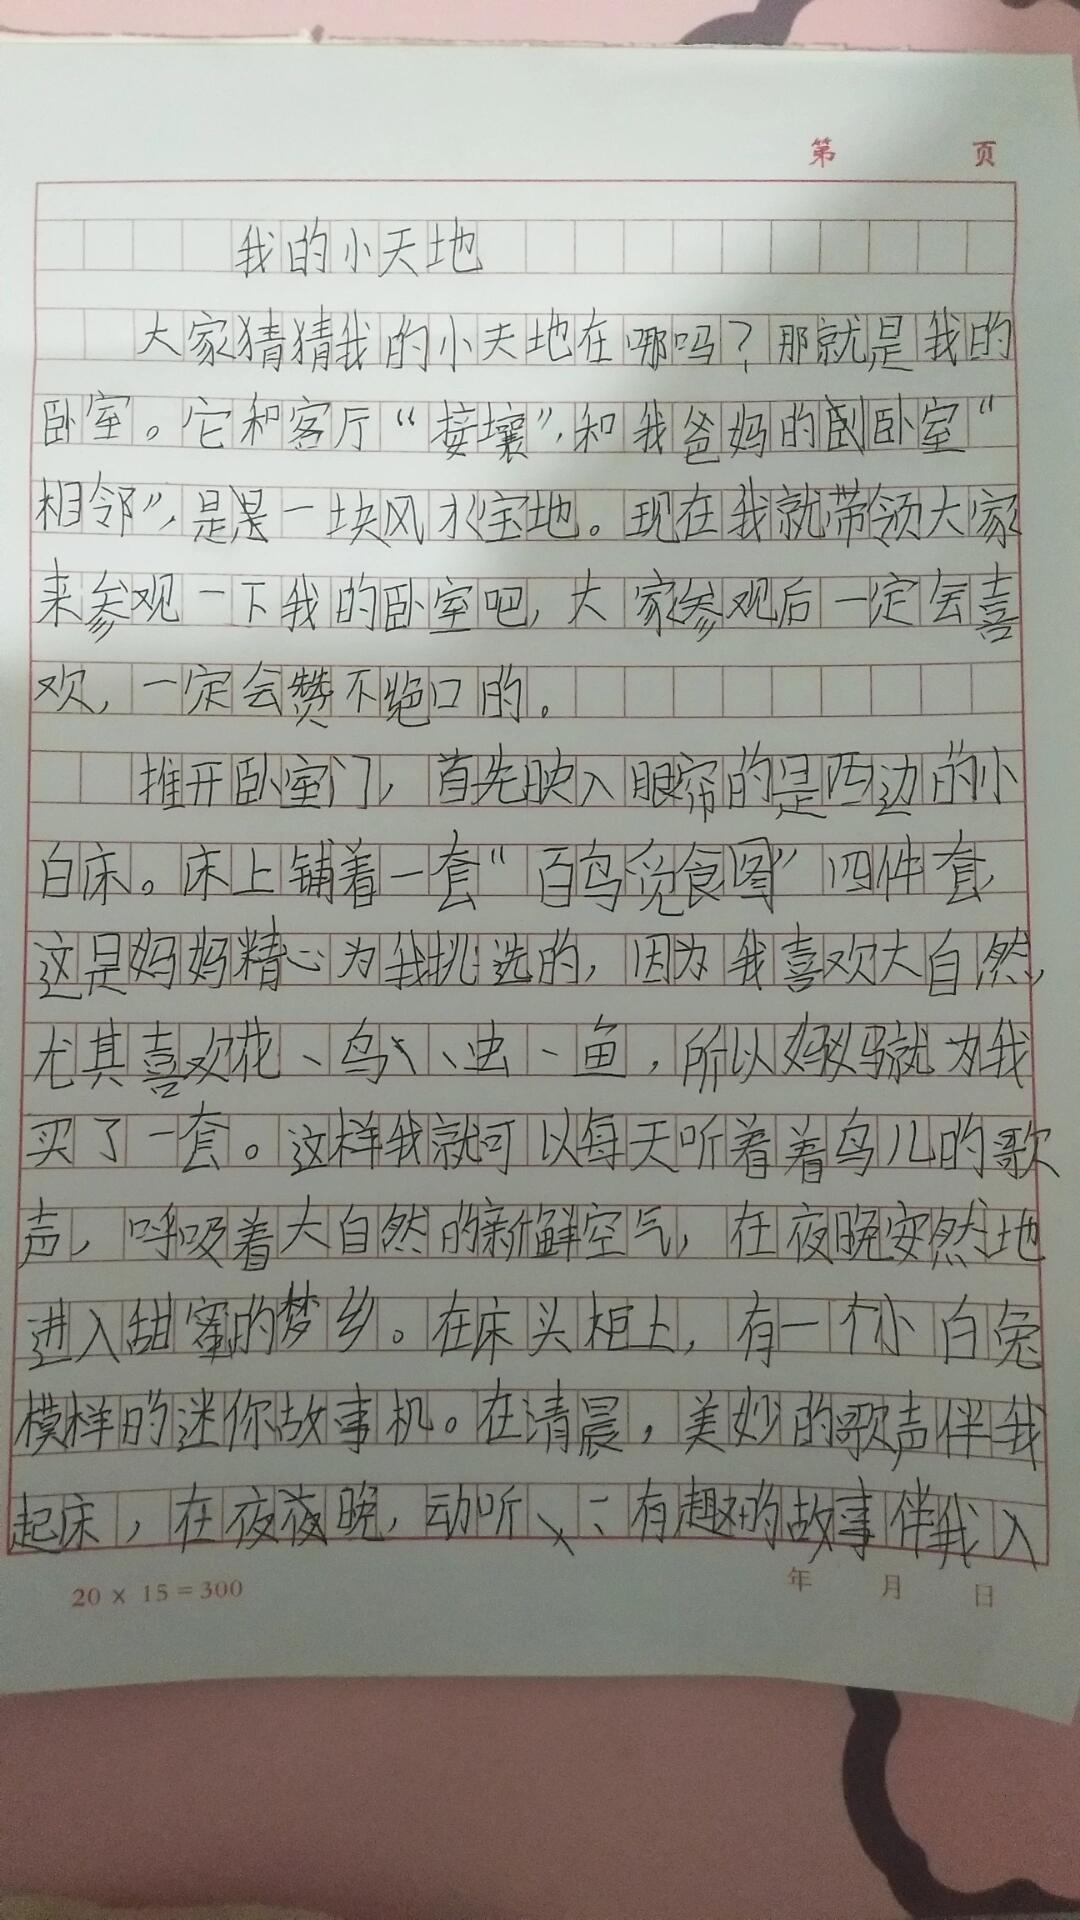 第 页
我的小天地
大家猜猜我的小天地在哪吗？那就是我的
卧室。它和客厅“接壤”，和我爸妈的卧室“
相邻”，是一块风水宝地。现在我就带领大家
来参观一下我的卧室吧，大家参观后一定会喜
欢，一定会赞不绝口的。
推开卧室门，首先映入眼帘的是西边的小
白床。床上铺着一套“百鸟觅食图”四件套，
这是妈妈精心为我挑选的，因为我喜欢大自然，
尤其喜欢花、鸟、虫、鱼，所以妈妈就为我
买了一套。这样我就可以每天听着着鸟儿的歌
声，呼吸着大自然的新鲜空气，在夜晚安然地
进入甜蜜的梦乡。在床头柜上，有一个小白兔
模样的迷你故事机。在清晨，美妙的歌声伴我
起床，在夜夜晚，动听、有趣的故事伴我入
20 × 15 = 300
年 月 日